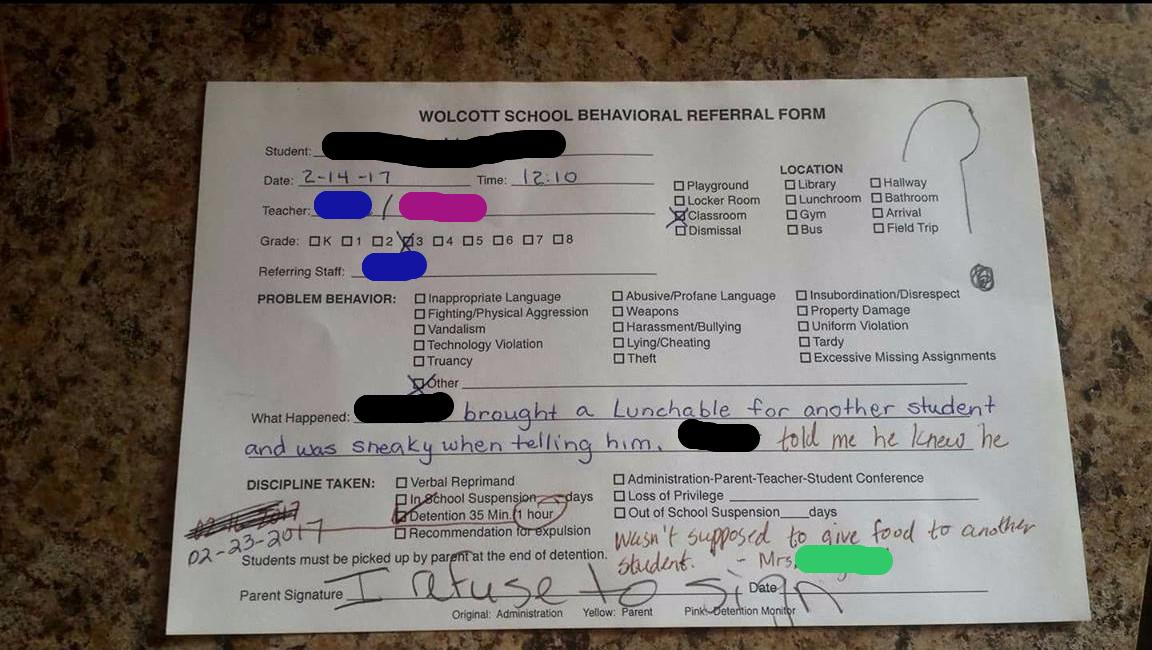 WOLCOTT SCHOOL BEHAVIORAL REFERRAL FORM
Student:
Date: 2-14-17 Time: 12:10
Teacher: /
Grade: K 1 2 3 4 5 6 7 8
Referring Staff:
LOCATION
Playground Library Hallway
Locker Room Lunchroom Bathroom
Classroom Gym Arrival
Dismissal Bus Field Trip
?
PROBLEM BEHAVIOR: Inappropriate Language Abusive/Profane Language Insubordination/Disrespect
Fighting/Physical Aggression Weapons Property Damage
Vandalism Harassment/Bullying Uniform Violation
Technology Violation Lying/Cheating Tardy
Truancy Theft Excessive Missing Assignments
Other
What Happened: brought a Lunchable for another student
and was sneaky when telling him. told me he knew he
DISCIPLINE TAKEN: Verbal Reprimand Administration-Parent-Teacher-Student Conference
In School Suspension days Loss of Privilege
Detention 35 Min./1 hour Out of School Suspension____days
Recommendation for expulsion
02-23-2017
wasn't supposed to give food to another
student. - Mrs.
Students must be picked up by parent at the end of detention.
Parent Signature I refuse to sign Date
Original: Administration Yellow: Parent Pink: Detention Monitor